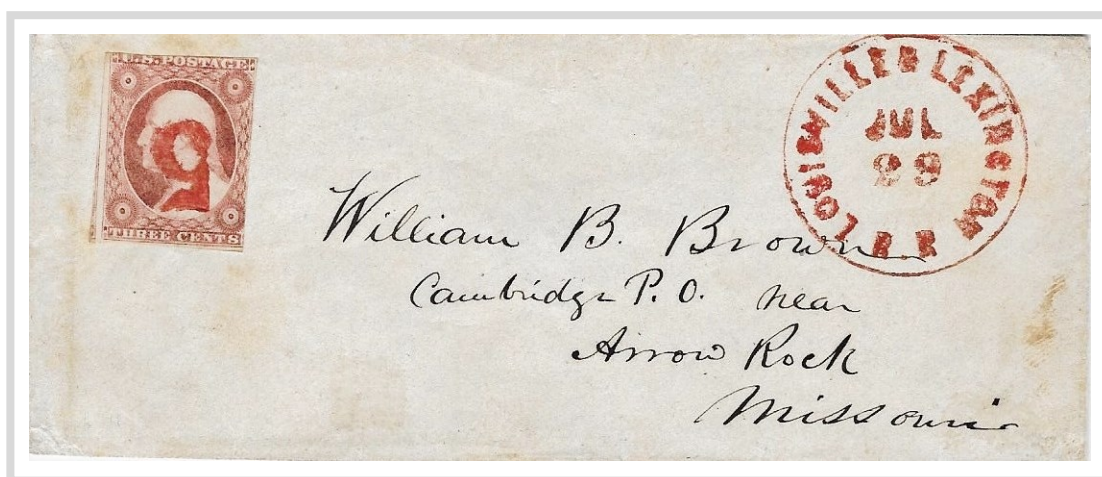 U.S. POSTAGE
THREE CENTS
LOUISVILLE & LEXINGTON R R
JUL
29
William B. Brown
Cambridge P. O. near
Arrow Rock
Missouri